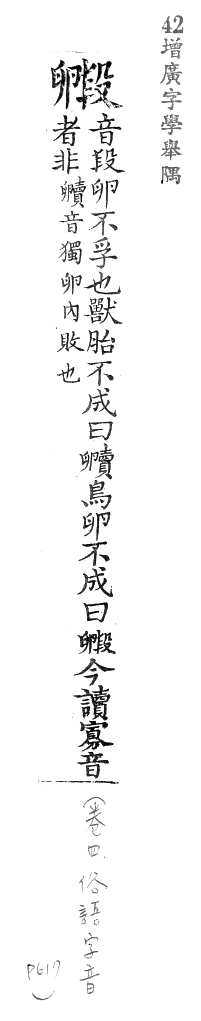 42增廣字學舉隅
毈音段卵不孚也獸胎不成曰殰鳥卵不成曰毈今讀寡音
者非殰音獨卵內敗也
(卷四、俗語字音
P617)